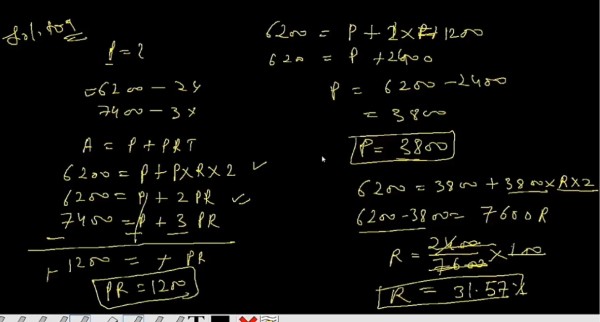 P = ?
= 6200 - 2y
7400 - 3y
A = P + PRT
6200 = P + P×R×2 ✓
6200 = P + 2PR ✓
7400 = P + 3PR
- - -
+ 1200 = + PR
PR = 1200
6200 = P + 2×1200
6200 = P + 2400
P = 6200 - 2400
= 3800
P = 3800
6200 = 3800 + 3800×R×2
6200 - 3800 = 7600R
R = 2400/7600 × 100
R = 31.57%